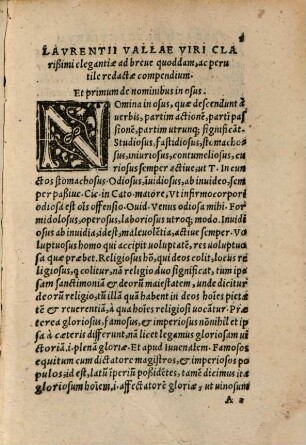 LAVRENTII VALLAE VIRI CLA
rißimi elegantiæ ad breue quoddam, ac peru
tile redactæ compendium.
Et primum de nominibus in osus.
NOmina in osus, quæ descendunt à
uerbis, partim actionē, parti pas
sionē, partim utrunq; significāt.
Studiosus, fastidiosus, stomacho=
sus, iniuriosus, contumeliosus, cu
riosus semper actiue, ut T. In cun
ctos stomachosus. Odiosus, iuidiosus, ab inuideo sem
per paßiue. Cic. in Cato. maiore, Vt infirmo corpori
odiosa est oīs offensio. Ouid. Venus odiosa mihi. For
midolosus, operosus, laboriosus utroq; modo. Inuidi
osus ab inuidia, idest, maleuolētia, actiue semper. Vo
luptuosus homo qui accipit voluptatē, res uoluptuo
sa quæ præbet. Religiosus hō, qui deos colit, locus re
ligiosus, q̄ colitur, nā religio duo significat, tum ip=
sam sanctimoniā & deorū maiestatem, unde dicitur
deorū religio, tū illā quā habent in deos hoīes pietā
tē & reuerentiā, à qua hoīes religiosi uocātur. Præ
terea gloriosus, famosus, & imperiosus nōnihil et ip
sa à cæteris differunt, nā licet legamus gloriosam ui
ctoriā .i. plenā gloriæ. Et apud iuuenalem. Famosos
equitum cum dictatore magistros, & imperiosos po
pulos, id est, latū iperiū poßidētes, tamē dicimus itā
gloriosum hoīem, .i. affectatorē gloriæ, ut uinosum
A 2